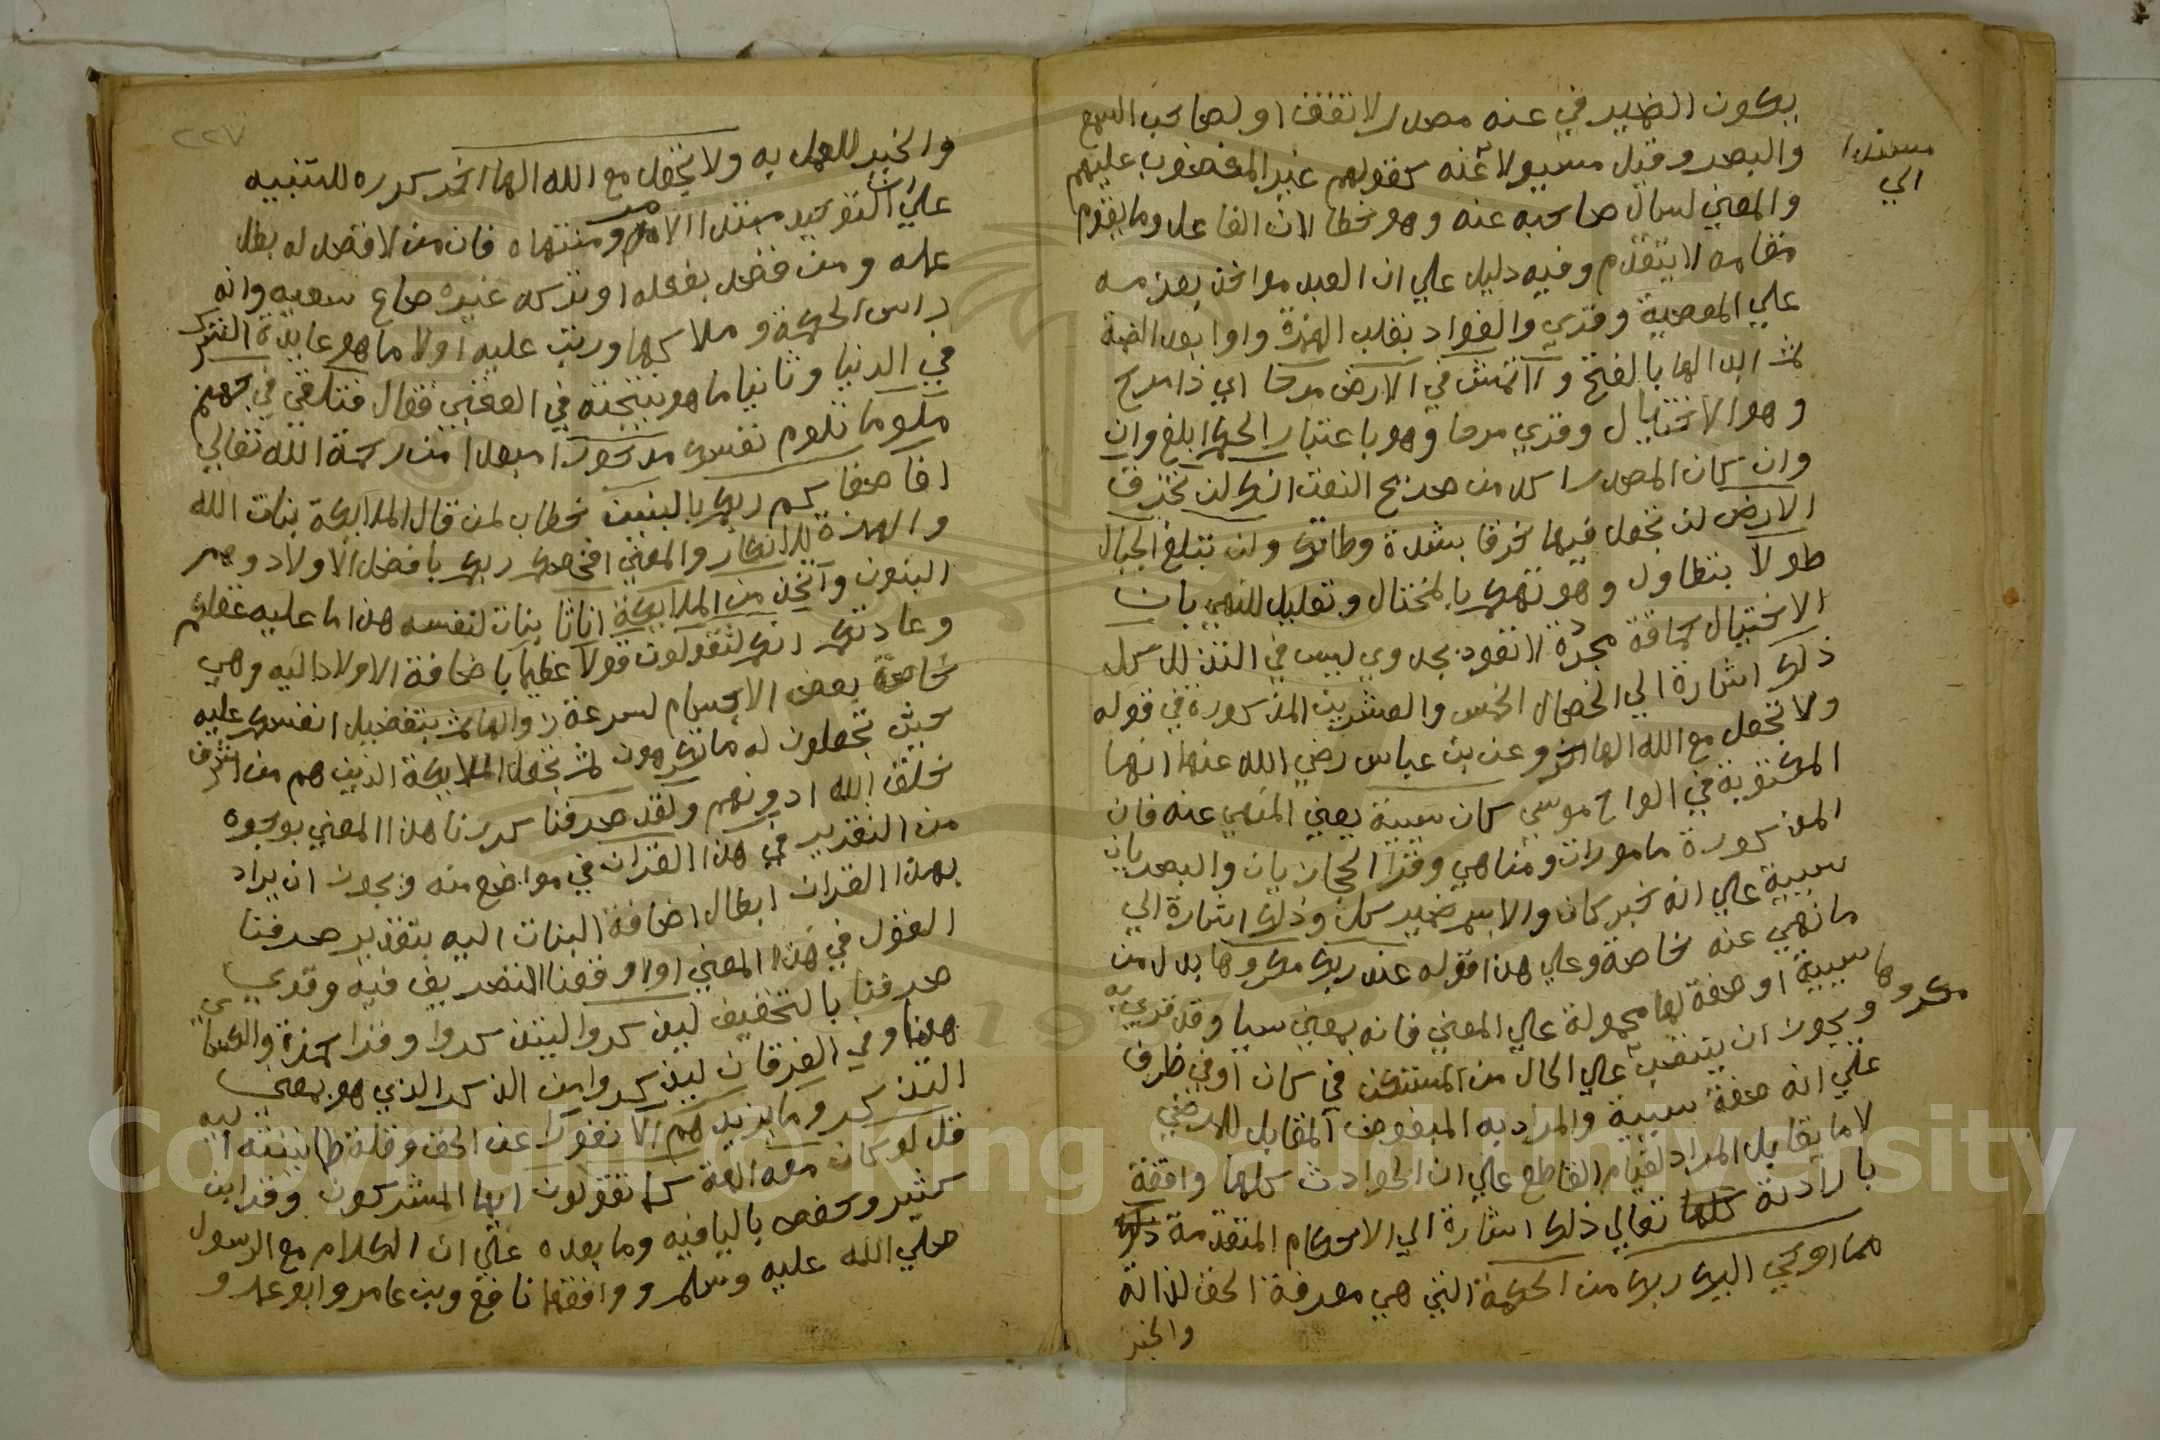 يكون الضمير في عنه مصدر لا تقف او لصاحب السمع
والبصر وقيل مسيولا عنه كقولهم غير المغضوب عليهم
مسندا
الي
والمعني لسال صاحبه عنه وهو خطا لان الفاعل وما يقوم
مقامه لا يتقدم وفيه دليل علي ان العبد مواخذ بعزمه
علي المعصية وقري والفواد بقلب الهمزة واوا بعد الضمة
ثم ابدالها بالفتح ولا تمش في الارض مرحا اي ذا مرح
وهو الاختيال وقري مرحا وهو باعتبار الحكم ابلغ وان
وان كان المصدر اكد من صريح النعت انك لن تخرق
الارض لن تجعل فيها خرقا بشدة وطاتك ولن تبلغ الجبال
طولا بتطاولك وهو تهكم بالمختال وتعليل للنهي بان
الاختيال حماقة مجردة لا تعود بجدوي ليس في التذلل كل
ذلك اشارة الي الخصال الخمس والعشرين المذكورة في قوله
ولا تجعل مع الله الها اخر وعن بن عباس رضي الله عنهما انها
المكتوبة في الواح موسي كان سيية يعني المنهي عنه فان
المذكورة مامورات ومناهي وقرا الحجازيان والبصريان
سيية علي انه خبر كان والاسم ضمير كل وذلك اشارة الي
ما نهي عنه خاصة وعلي هذا قوله عند ربك مكروها بدل من
سيية او صفة لها محمولة علي المعني فانه بمعني سييا وقد قري به
مكروها ويجوز ان ينتصب علي الحال من المستكن في كان او في ظرف
علي انه صفة سيية والمراد به المبغوض المقابل للمرضي
لا ما يقابل المراد لقيام القاطع علي ان الحوادث كلها واقعة
بارادته كلها تعالي ذلك اشارة الي الاحكام المتقدمة ذلك
مما اوحي اليك ربك من الحكمة التي هي معرفة الحق لذاته
والخير
٢٢٧
والخير للعمل به ولا تجعل مع الله الها اخر كرره للتنبيه
علي ان التوحيد مبتدا الامر ومنتهاه فان من لا قصد له بطل
عمله ومن قصد بفعله او تركه غيره ضاع سعيه وانه
راس الحكمة وملاكها ورتب عليه اولا ما هو عايدة الشرك
في الدنيا وثانيا ما هو نتيجته في العقبي فقال فتلقي في جهنم
ملوما تلوم نفسك مدحورا مبعدا من رحمة الله تعالي
افاصفاكم ربكم بالبنين خطاب لمن قال الملايكة بنات الله
والهمزة للانكار والمعني افخصكم ربكم بافضل الاولاد وهم
البنون واتخذ من الملايكة اناثا بنات لنفسه هذا ما عليه عقلكم
وعادتكم انكم لتقولون قولا عظيما باضافة الاولاد اليه وهي
خاصة بعض الاجسام لسرعة زوالها ثم بتفضيل انفسكم عليه
حيث تجعلون له ما تكرهون ثم بجعل الملايكة الذين هم من اشرف
خلق الله ادونهم ولقد صرفنا كررنا هذا المعني بوجوه
من التقرير في هذا القران في مواضع منه ويجوز ان يراد
بهذا القران ابطال اضافة البنات اليه بتقدير صرفنا
القول في هذا المعني او اوقعنا التصريف فيه وقري
صرفنا بالتخفيف ليذكروا ليتذكروا وقرا حمزة والكساي
هنا وفي الفرقان ليذكروا من الذكر الذي هو بمعني
التذكر وما يزيدهم الا نفورا عن الحق وقلة طانينته اليه
قل لو كان معه الهة كما تقولون ايها المشركون وقرا بن
كثير وحفص باليا فيه وما بعده علي ان الكلام مع الرسول
صلي الله عليه وسلم ووافقهما نافع وبن عامر وابو عمرو
Copyright © King Saud University